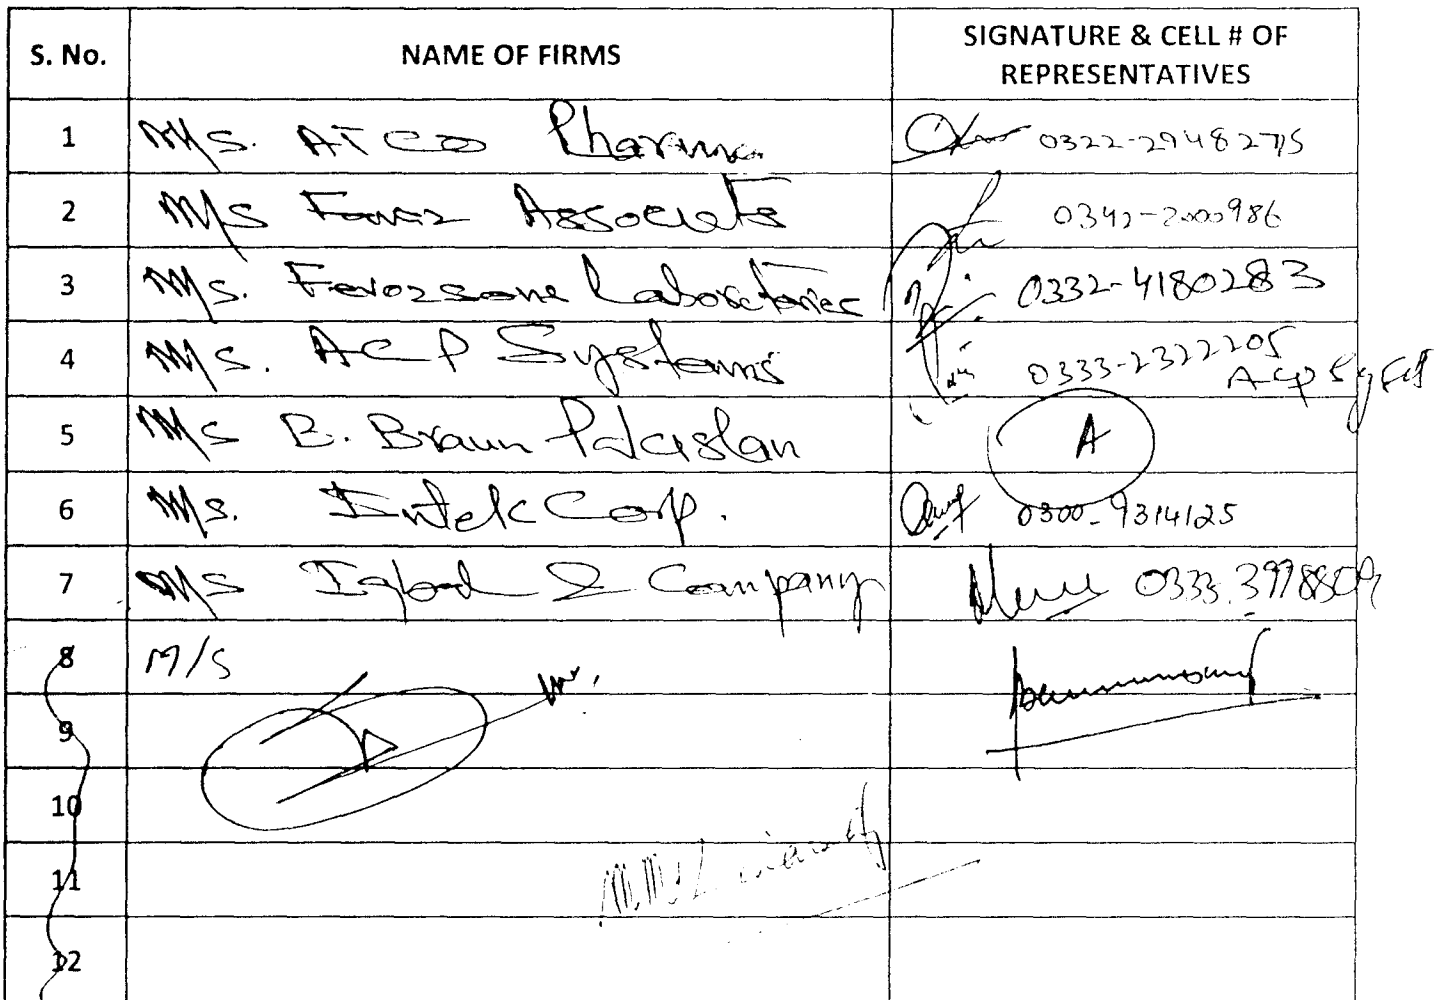 S. No. NAME OF FIRMS SIGNATURE & CELL # OF REPRESENTATIVES
1 M/S. ATCO Pharma 0322-2948275
2 M/S Fawaz Associate 0342-2000986
3 M/S. Ferozsone Laboratories 0332-4180283
4 M/S. ACP Systems 0333-2322205
Acp Syst
5 M/S B. Braun Pakistan A
6 M/S. Intek Corp. 0300-9314125
7 M/S Iqbal & Company
8 M/S
9
10
11
12